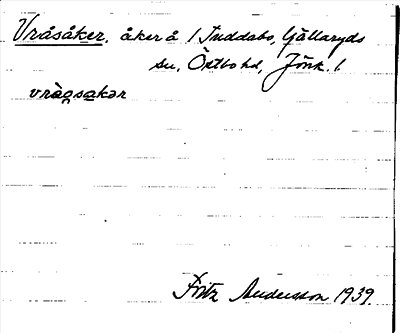 Vråsåker, åker å 1 Tuddabo, Gällaryds
sn, Östbo hd, Jönk. l
vrågsakər
Fritz Andersson 1939.